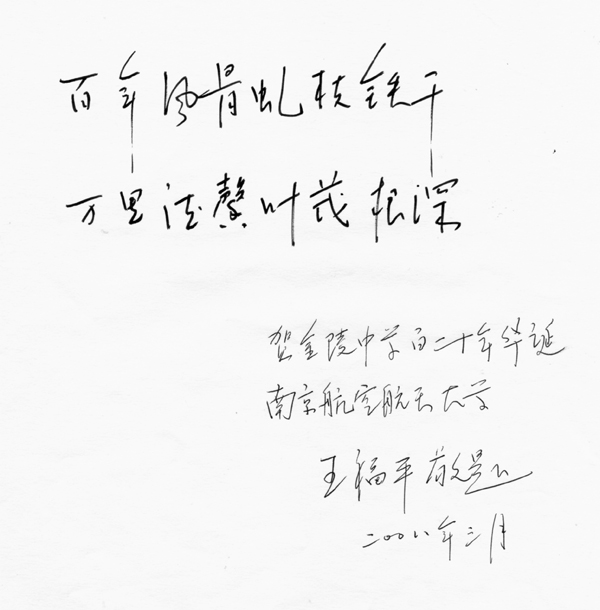 百年风骨虬枝铁干
万里德馨叶茂根深
贺金陵中学百二十年华诞
南京航空航天大学
王福平敬题
二00八年三月